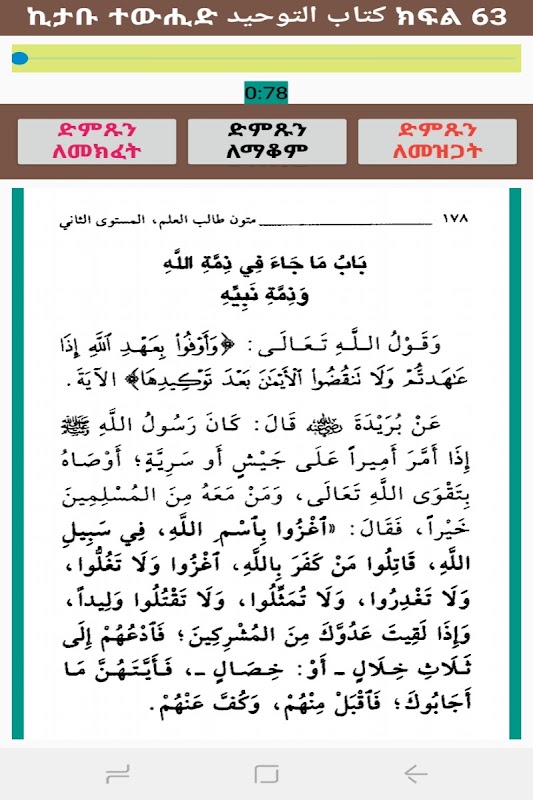 ኪታቡ ተውሒድ كتاب التوحيد ክፍል 63
0:78
ድምጹን ለመክፈት
ድምጹን ለማቆም
ድምጹን ለመዝጋት
١٧٨ متون طالب العلم، المستوى الثاني
بَابُ مَا جَاءَ فِي ذِمَّةِ اللَّهِ
وَذِمَّةِ نَبِيِّهِ
وَقَوْلُ اللَّهِ تَعَالَى: ﴿وَأَوْفُوا۟ بِعَهْدِ ٱللَّهِ إِذَا
عَـٰهَدتُّمْ وَلَا تَنقُضُوا۟ ٱلْأَيْمَـٰنَ بَعْدَ تَوْكِيدِهَا﴾ الآيَةَ.
عَنْ بُرَيْدَةَ رضي الله عنه قَالَ: كَانَ رَسُولُ اللَّهِ ﷺ
إِذَا أَمَّرَ أَمِيراً عَلَى جَيْشٍ أَو سَرِيَّةٍ؛ أَوْصَاهُ
بِتَقْوَى اللَّهِ تَعَالَى، وَمَنْ مَعَهُ مِنَ المُسْلِمِينَ
خَيْراً، فَقَالَ: «ٱغْزُوا بِٱسْمِ اللَّهِ، فِي سَبِيلِ
اللَّهِ، قَاتِلُوا مَنْ كَفَرَ بِاللَّهِ، ٱغْزُوا وَلَا تَغُلُّوا،
وَلَا تَغْدِرُوا، وَلَا تُمَثِّلُوا، وَلَا تَقْتُلُوا وَلِيداً،
وَإِذَا لَقِيتَ عَدُوَّكَ مِنَ المُشْرِكِينَ؛ فَٱدْعُهُمْ إِلَى
ثَلَاثِ خِلَالٍ - أَوْ: خِصَالٍ -، فَأَيَّتَهُنَّ مَا
أَجَابُوكَ؛ فَٱقْبَلْ مِنْهُمْ، وَكُفَّ عَنْهُمْ.